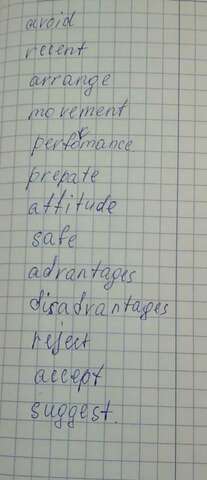 avoid
recent
arrange
movement
performance
prepate
attitude
safe
advantages
disadvantages
reject
accept
suggest.